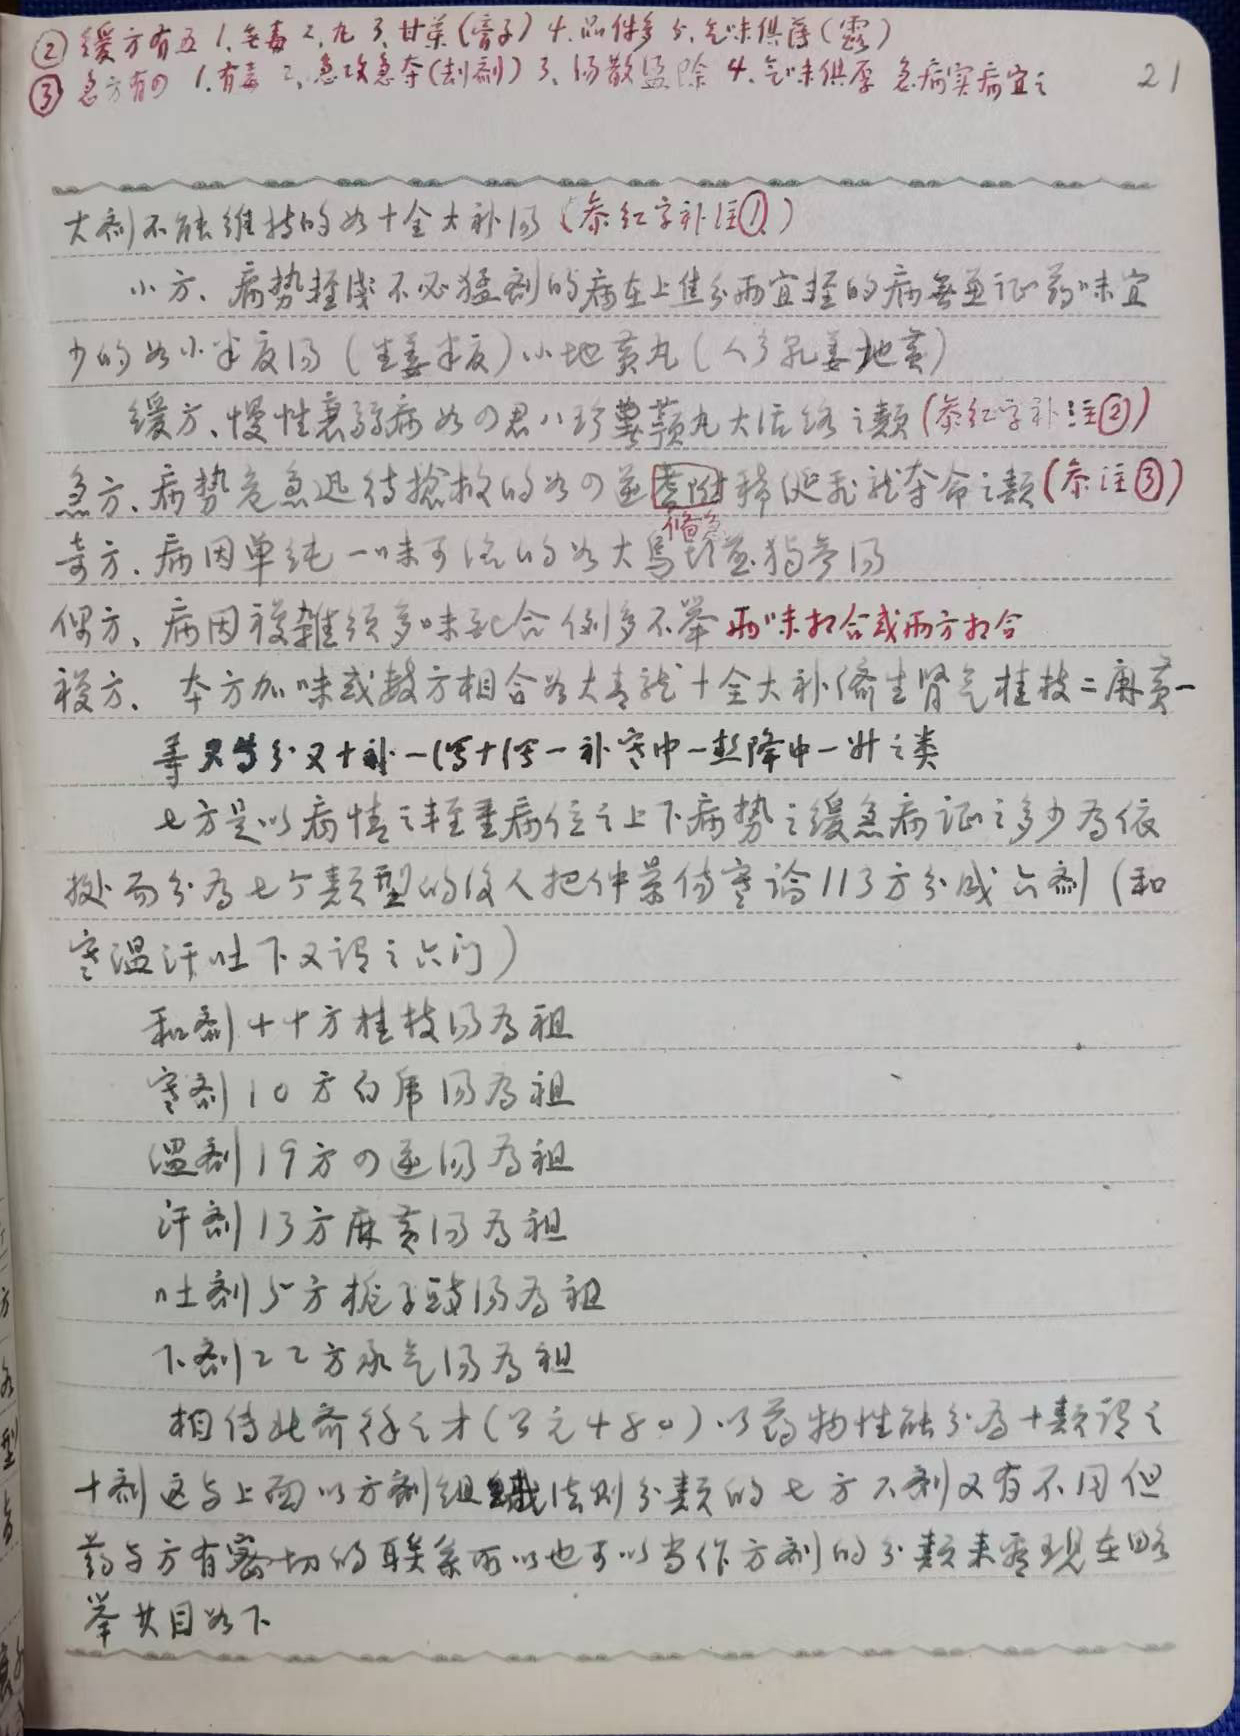 ② 缓方有五 1.無毒 2.丸 3.甘草(膏子) 4.品件多 5.气味俱薄(露)
③ 急方有四 1.有毒 2.急攻急夺(刮剂) 3.汤散荡除 4.气味俱厚 急病实病宜之
21
大剂不能维持的如十全大补汤(参红字补注①)
小方、病势轻浅不必猛剂的病在上焦分两宜轻的病無兼证药味宜
少的如小半夏汤(生姜半夏)小地黄丸(人参乳姜地黄)
缓方、慢性衰弱病如四君八珍 丸大活络之类(参红字补注②)
急方、病势危急迅待抢救的如四逆 附稀涎 夺命之类(参注③)
备急
奇方、病因单纯一味可治的如大烏 独参汤
偶方、病因複雜须多味配合例多不举 两味相合或两方相合
複方、本方加味或数方相合如大青龙十全大补济生肾气桂枝二麻黄一
等 又十补一泻十泻一补寒中一热降中一升之类
七方是以病情之轻重病位之上下病势之缓急病证之多少为依
据而分为七个类型的後人把仲景伤寒论113方分成六剂(和
寒温汗吐下又谓之六门)
和剂44方桂枝汤为祖
寒剂10方白虎汤为祖
温剂19方四逆汤为祖
汗剂13方麻黄汤为祖
吐剂5方栀子豉汤为祖
下剂22方承气汤为祖
相传北齐徐之才(公元480)以药物性能分为十类谓之
十剂这与上面以方剂组織法则分类的七方六剂又有不同但
药与方有密切的联系所以也可以当作方剂的分类来看现在略
举其目如下